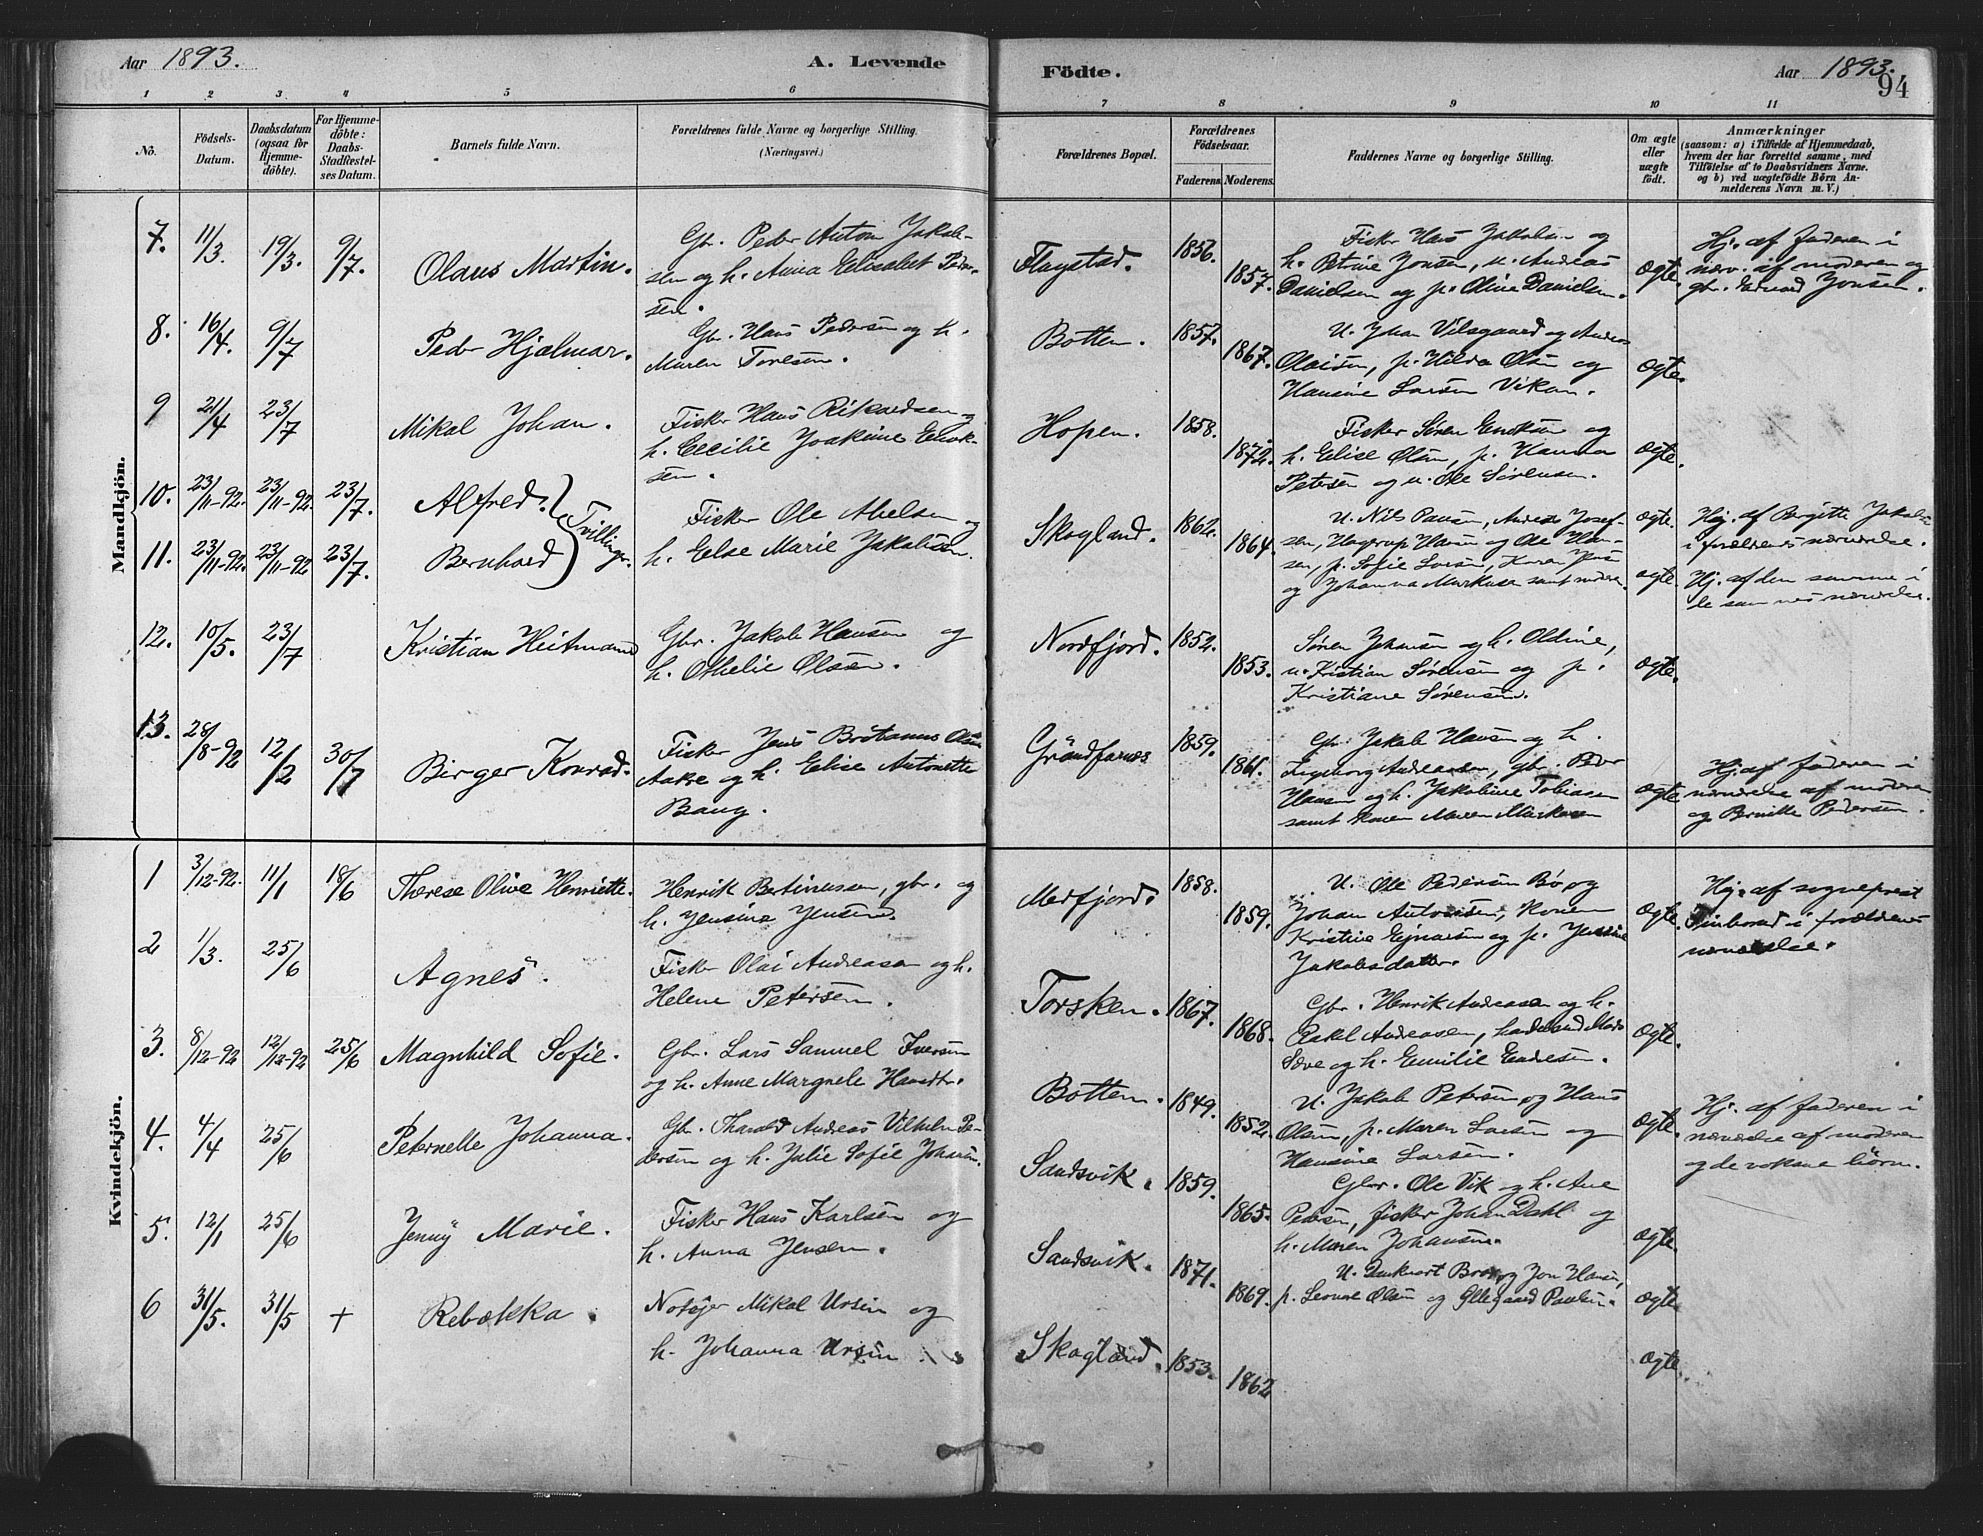 Aar 1893.
A. Levende
Födte.
Aar 1893.
94
1 2 3 4 5 6 7 8 9 10 11
No.
Födsels-Datum.
Daabsdatum (ogsaa for Hjemme-döbte).
For Hjemme-döbte: Daabs-Stadfæstel-ses Datum.
Barnets fulde Navn.
Forældrenes fulde Navne og borgerlige Stilling.
(Næringsvei.)
Forældrenes Bopæl.
Forældrenes Födselsaar.
Faderens. Moderens.
Faddernes Navne og borgerlige Stilling.
Om ægte eller uægte født.
Anmærkninger
(saasom: a) i Tilfælde af Hjemmedaab,
hvem der har forrettet samme, med
Tilföielse af to Daabsvidners Navne.
og b) ved uægtefödte Börn An-
melderens Navn m. V.)
Mandkjön.
7. 11/3. 19/3. 9/7. Olaus Martin.
Gbr. Peder Anton Jakob-
sen og h. Anna Elisabet Peder-
sen.
Flagstad. 1856. 1857.
Fisker Hans Jakobsen og
h. Petrine Jonsen, u. Andreas
Danielsen og p. Oline Danielsen.
Ægte.
Hj. af faderen i
nærv. af moderen og
gbr. Edvard Jonsen.
8. 16/4. 9/7 Peder Hjalmar.
Gbr. Hans Pedersen og h.
Maren Toresen.
Botten. 1857. 1867.
U. Johan Vilsgaard og Andreas
Olaisen, p. Hilda Olsen og
Hansine Larsen Vikan.
Ægte.
9 21/4 23/7 Mikal Johan.
Fisker Hans Rikardsen og
h. Cecilie Joakime Enok-
sen.
Hopen. 1858. 1872.
Fisker Søren Enoksen og
h. Elise Olsen, p. Hanna
Petersen og u. Ole Sørensen.
Ægte.
10. 23/11-92. 23/11-92. 23/7. Alfred.
11. 23/11-92. 23/11-92 23/7. Bernhard
Tvillinger.
Fisker Ole Abelsen og
h. Else Marie Jakobsen.
Skogland. 1862. 1864.
U. Nils Paulsen, Andreas Josef-
sen, Hagerup Hansen og Ole Han-
sen, p. Sofie Larsen, Karen
og Johanna Markusen samt
Ægte.
Ægte.
Hj. af Bergitte Jakobsen
i forældrenes nærværelse.
Hj. af den samme i
de sammes nærværelse.
12. 10/5. 23/7 Kristian Heitmann
Gbr. Jakob Hansen og
h. Othelie Olsen.
Nordfjord. 1852. 1853.
Søren Johansen og h. Oldine,
u. Kristian Sørensen og p.
Kristiane Sørensen.
Ægte.
13. 28/8-92 12/2 30/7 Birger Konrad.
Fisker Jens Brötanus Olsen
Aakre og h. Elise Antonette
Bang.
Gråndfarnes 1859. 1861.
Gbr. Jakob Hansen og h.
Ingeborg Andreasen, gbr. Peder
Hansen og h. Jakobine Tobiasen
samt konen Maren Markusen
Ægte
Hj. af faderen i
nærværelse af moderen
og Bernikke Pedersen.
Kvindekjön.
1 3/12-92. 11/1 18/6 Therese Olive Henriette.
Henrik Bertinussen, gbr. og
h. Jensine Jensen.
Medfjord. 1858. 1859.
U. Ole Pedersen Bö og
Johan Antonsen, konen
Kristine Ejnarsen og p. Jensine
Jakobsdatter.
Ægte.
Hj. af sogneprest
i forældrenes
nærværelse.
2 1/3. 25/6 Agnes.
Fisker Olai Andreasen og h.
Helene Petersen.
Torsken. 1867. 1868.
Gbr. Henrik Andreasen og h.
Rakel Andreasen, handelsmand
Sæve og h. Emilie Endresen.
Ægte.
3. 8/12-92 12/12-92 25/6 Magnhild Sofie.
Gbr. Lars Samuel Iversen
og h. Anne Margrele Hansdtr.
Botten. 1849. 1852.
U. Jakob Petersen og Hans
Olsen, p. Maren Larsen og
Hansine Larsen.
Ægte.
Hj. af faderen i
nærværelse af moderen
og de voksne börn.
4. 4/4 25/6 Peternelle Johanna.
Gbr. Tharald Andreas Vilhelm Pe-
dersen og h. Julie Sofie Johansen.
Sandsvik. 1859. 1865.
Gbr. Ole Vik og h. Ane
Pedersen, fisker Johan Dahl og
h. Maren Johansen.
Ægte.
5. 12/1 25/6 Jenny Marie.
Fisker Hans Karlsen og
h. Anna Jensen.
Sandsvik. 1871. 1869.
U. og Jon Hansen,
p. Leonore Olsen og Ellegaard Paulsen.
Ægte.
6 31/5. 31/5 + Rebekka.
Notøjer Mikal Ursin og
h. Johanna Ursin.
Skogland. 1853. 1862
Ægte.